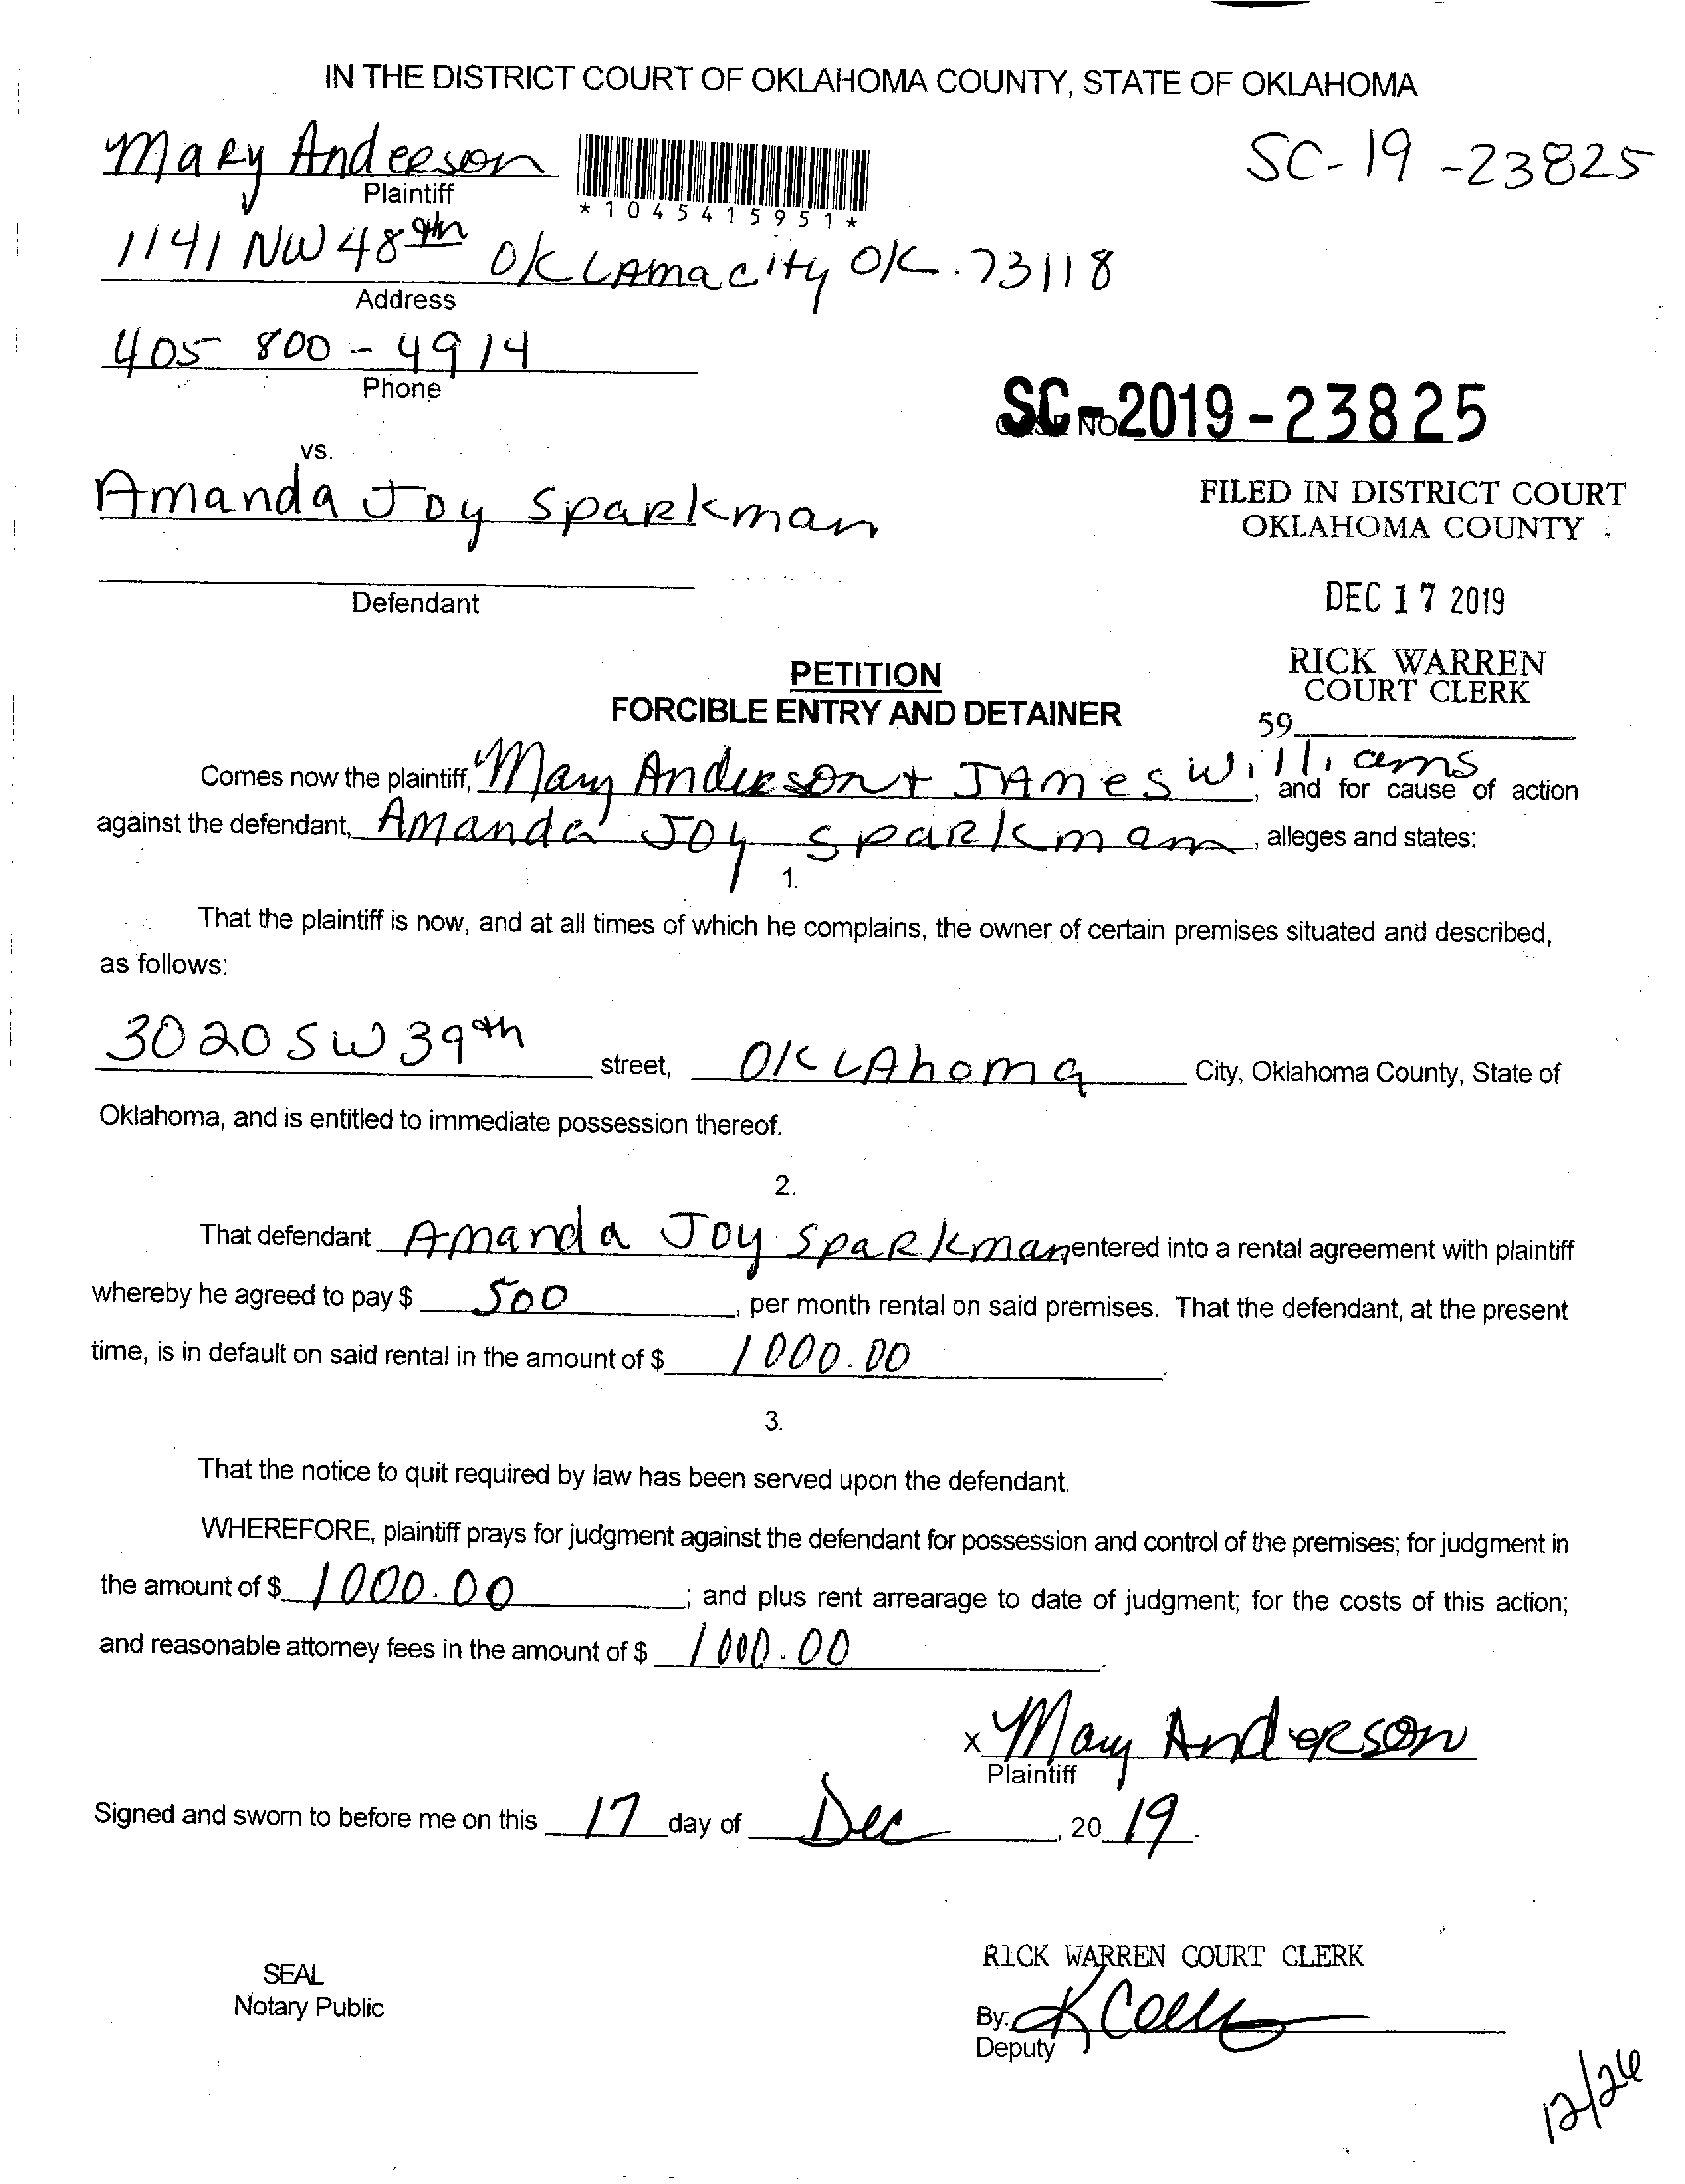 IN THE DISTRICT COURT OF OKLAHOMA COUNTY, STATE OF OKLAHOMA
Mary Anderson
SC-19-23825
Plaintiff
*1045415951*
1141 NW 48th Oklamacity OK. 73118
Address
405 800-4914
Phone
SC-2019-23825
vs.
Amanda Joy Sparkman
FILED IN DISTRICT COURT
OKLAHOMA COUNTY
Defendant
DEC 17 2019
PETITION
RICK WARREN
COURT CLERK
FORCIBLE ENTRY AND DETAINER
59
Comes now the plaintiff, Mary Anderson + James Williams, and for cause of action
against the defendant, Amanda Joy Sparkman, alleges and states:
1.
That the plaintiff is now, and at all times of which he complains, the owner of certain premises situated and described,
as follows:
3020 SW 39th street, Oklahoma City, Oklahoma County, State of
Oklahoma, and is entitled to immediate possession thereof.
2.
That defendant Amanda Joy Sparkman entered into a rental agreement with plaintiff
whereby he agreed to pay $ 500, per month rental on said premises. That the defendant, at the present
time, is in default on said rental in the amount of $ 1000.00
3.
That the notice to quit required by law has been served upon the defendant.
WHEREFORE, plaintiff prays for judgment against the defendant for possession and control of the premises; for judgment in
the amount of $ 1000.00; and plus rent arrearage to date of judgment; for the costs of this action;
and reasonable attorney fees in the amount of $ 1000.00.
x Mary Anderson
Plaintiff
Signed and sworn to before me on this 17 day of Dec, 20 19.
RICK WARREN COURT CLERK
SEAL
Notary Public
By:
Deputy
12/26